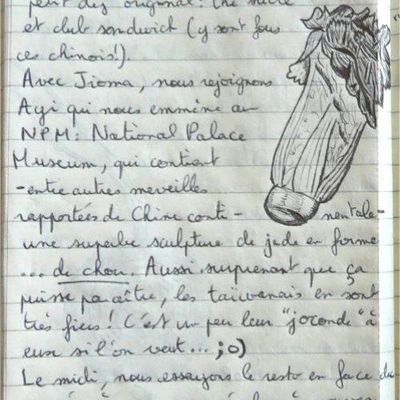 petit dej original: thé sucré
et club sandwich (y sont fous
ces chinois!).
Avec Jioma, nous rejoignons
Ayi qui nous emmène au
NPM: National Palace
Museum, qui contient
-entre autres merveilles
rapportées de Chine conti- nentale-
une superbe sculpture de jade en forme
... de chou. Aussi surprenant que ça
puisse paraître, les taïwanais en sont
très fiers! C'est un peu leur "joconde" à
eux si l'on veut... ;o)
Le midi, nous essayons le resto en face du